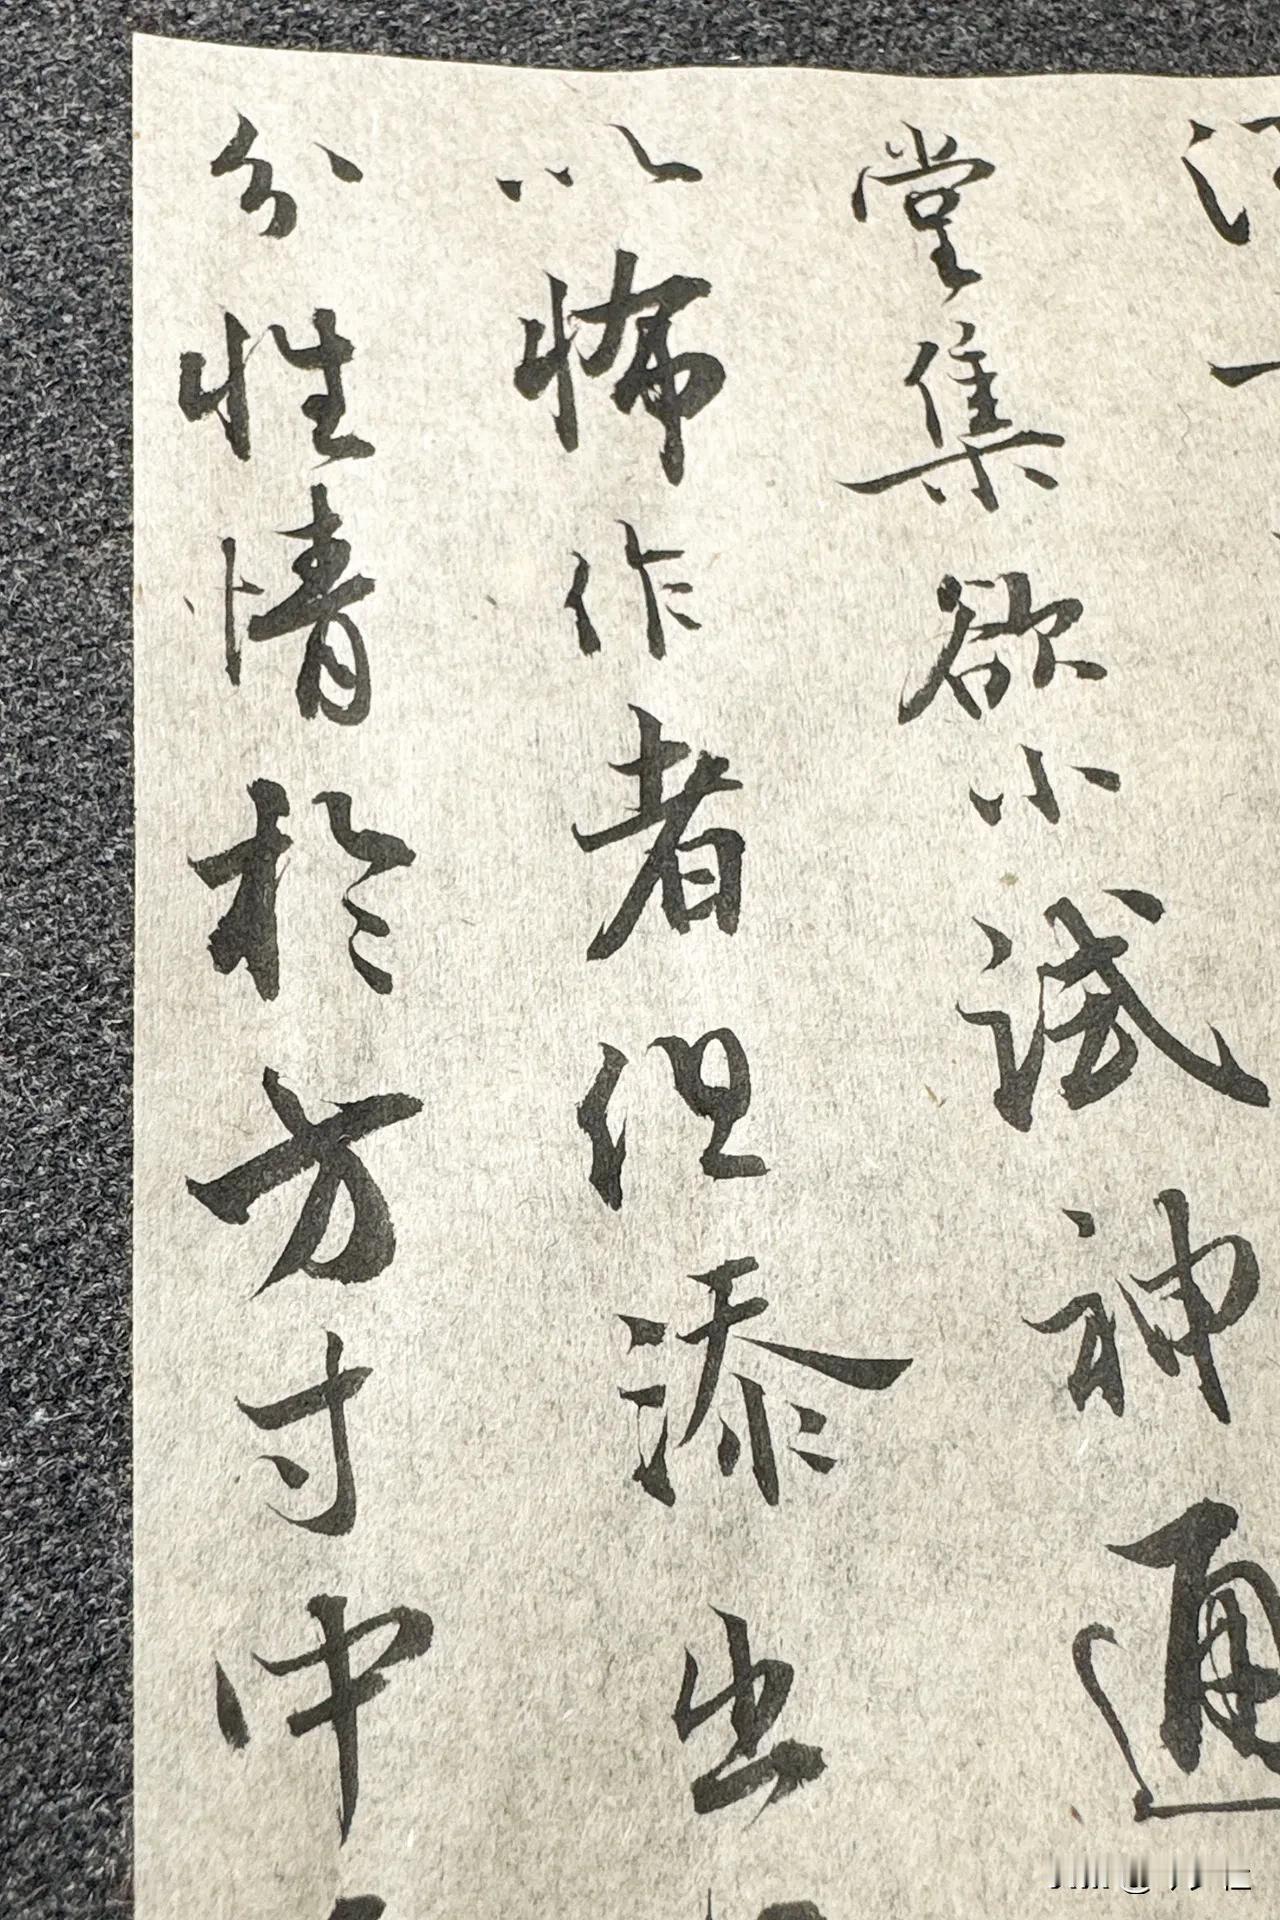 堂集欲小試神通
以怖作者但添出
分性情於方寸中